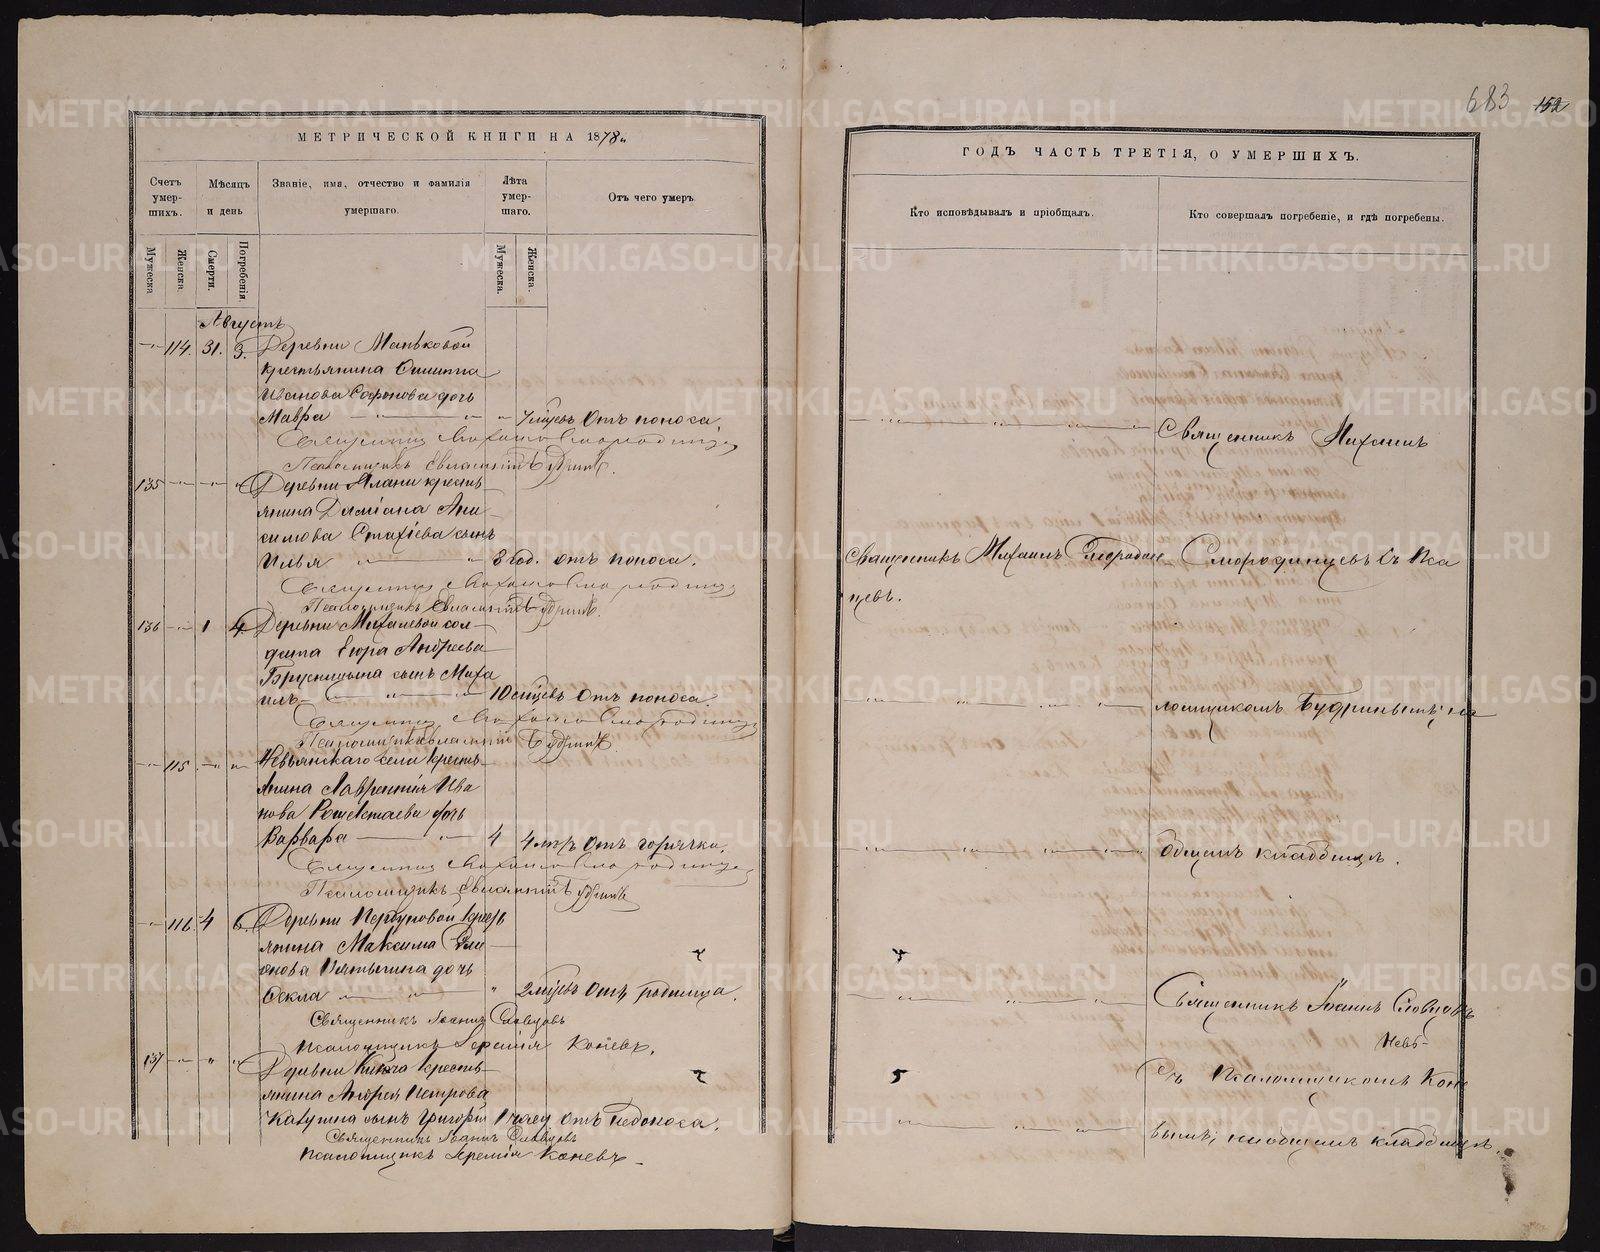 683 152
МЕТРИЧЕСКОЙ КНИГИ НА 1878й
Счетъ умер- шихъ.
Мѣсяцъ и день
Званіе, имя, отчество и фамилія умершаго.
Лѣта умер- шаго.
Отъ чего умеръ
Мужеска
Женска.
Смерти.
Погребенія.
Мужеска.
Женска.
Августъ
114. 31. 3. Деревни Маньковой
крестьянина Филиппа
Иванова Сафонова дочь
Мавра 7 мцевъ Отъ поноса.
Священникъ Михаилъ Смородинцевъ
Псаломщикъ Евлампій Будринъ.
135 Деревни Ялани кресть
янина Даміана Ани-
симова Стахіева сынъ
Илья 3 год. отъ поноса.
Священникъ Михаилъ Смородинцевъ
Псаломщикъ Евлампій Будринъ.
136 1 4 Деревни Михалевой сол-
дата Егора Андреева
Брусницына сынъ Миха
илъ 10 мцевъ Отъ поноса.
Священникъ Михаилъ Смородинцевъ
Псаломщикъ Евлампій Будринъ
115 Невьянскаго села кресть-
янина Лаврентія Ива
нова дочь
Варвара 4 Отъ горячки.
Священникъ Михаилъ Смородинцевъ
Псаломщикъ Евлампій Будринъ
116. 4 6. Деревни крест
янина Максима
дочь
Фекла 2 мцевъ Отъ родимца.
Священникъ Іоаннъ Словцовъ
Псаломщикъ Іеремія Коневъ.
137 Деревни Ключа кресть-
янина Андрея Петрова
сынъ Григорій отъ недоноса.
Священникъ Іоаннъ Словцовъ
Псаломщикъ Іеремія Коневъ
ГОДЪ ЧАСТЬ ТРЕТІЯ, О УМЕРШИХЪ.
Кто исповѣдывалъ и пріобщалъ.
Кто совершалъ погребеніе, и гдѣ погребены.
Священникъ Михаилъ
Священникъ Михаилъ Смородин-
цевъ.
Смородинцевъ съ Пса
ломщикомъ Будринымъ; на
общемъ кладбищѣ.
5
Священникъ Іоаннъ Словцовъ
Съ Псаломщикомъ Коне
вымъ; на общемъ кладбищѣ.
METRIKI.GASO-URAL.RU